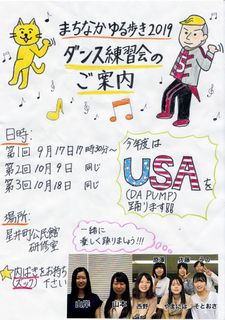 まちなかゆる歩き2019
ダンス練習会の
ご案内
日時:
第1回 9月17日17時30分～
第2回 10月9日 同じ
第3回 10月18日 同じ
今年度は
USAを
(DA PUMP)
踊ります!!
場所:
星井町公民館
研修室
一緒に
楽しく踊りましょう!!!
☆内ばきをお持ち
(ズック) 下さい
山岸
山本
西野
やまにし
そとおさ